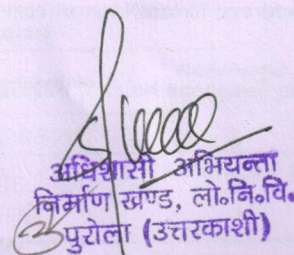 अधिशासी अभियन्ता
निर्माण खण्ड, लो॰नि॰वि॰
पुरोला (उत्तरकाशी)